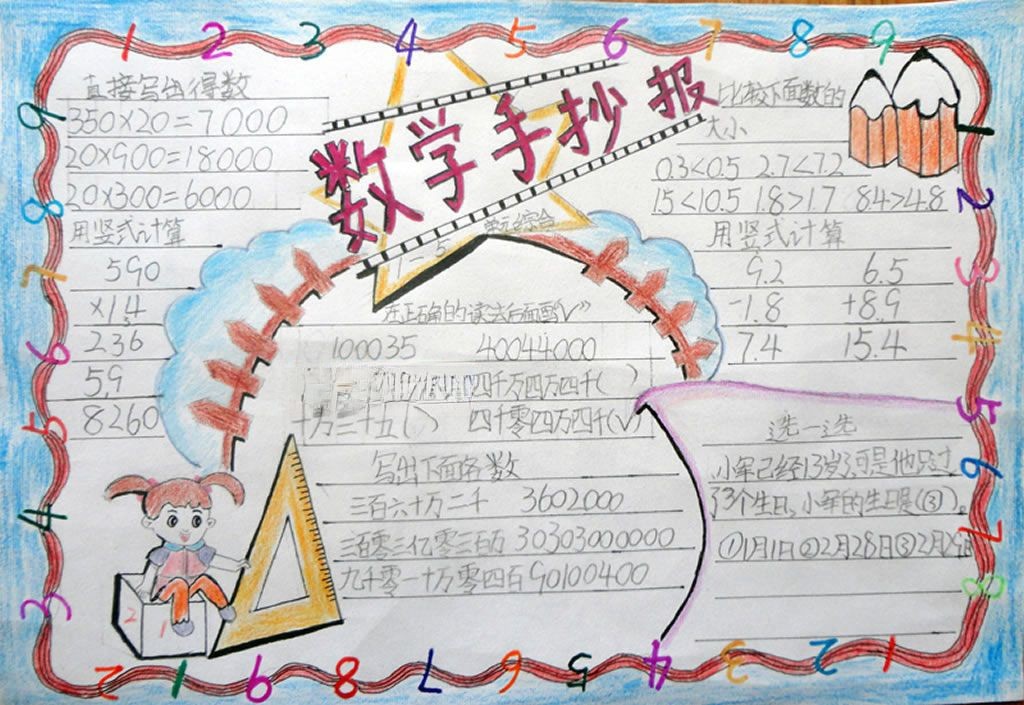 1 2 3 4 5 6 7 8 9
数学手抄报
1-5单元综合
直接写出得数
350×20=7000
20×900=18000
20×300=6000
用竖式计算
590
×14
236
59
8260
在正确的读法后面画“√”
100035 40044000
四千万四万四千( )
十万三十五( ) 四千零四万四千(√)
写出下面各数
三百六十万二千 3602000
三百零三亿零三百万 30303000000
九千零一十万零四百 90100400
比较下面数的
大小
0.3<0.5 2.7<7.2
1.5<10.5 1.8>1.7 8.4>4.8
用竖式计算
9.2 6.5
-1.8 +8.9
7.4 15.4
选一选
小军已经13岁,可是他只过
了3个生日,小军的生日是(③)。
①1月1日②2月28日③2月29日
2 1
9 8 7 6 5 4 3
2 3 4 5 6 7 8
2 1 9 8 7 6 5 4 3 2 1